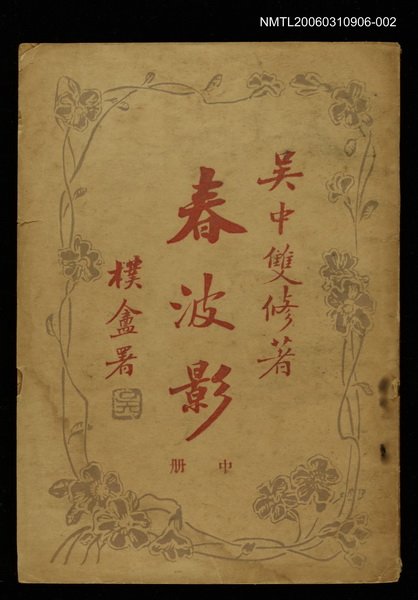 NMTL20060310906-002
吴中雙修著
春波影
中册
樸盦署